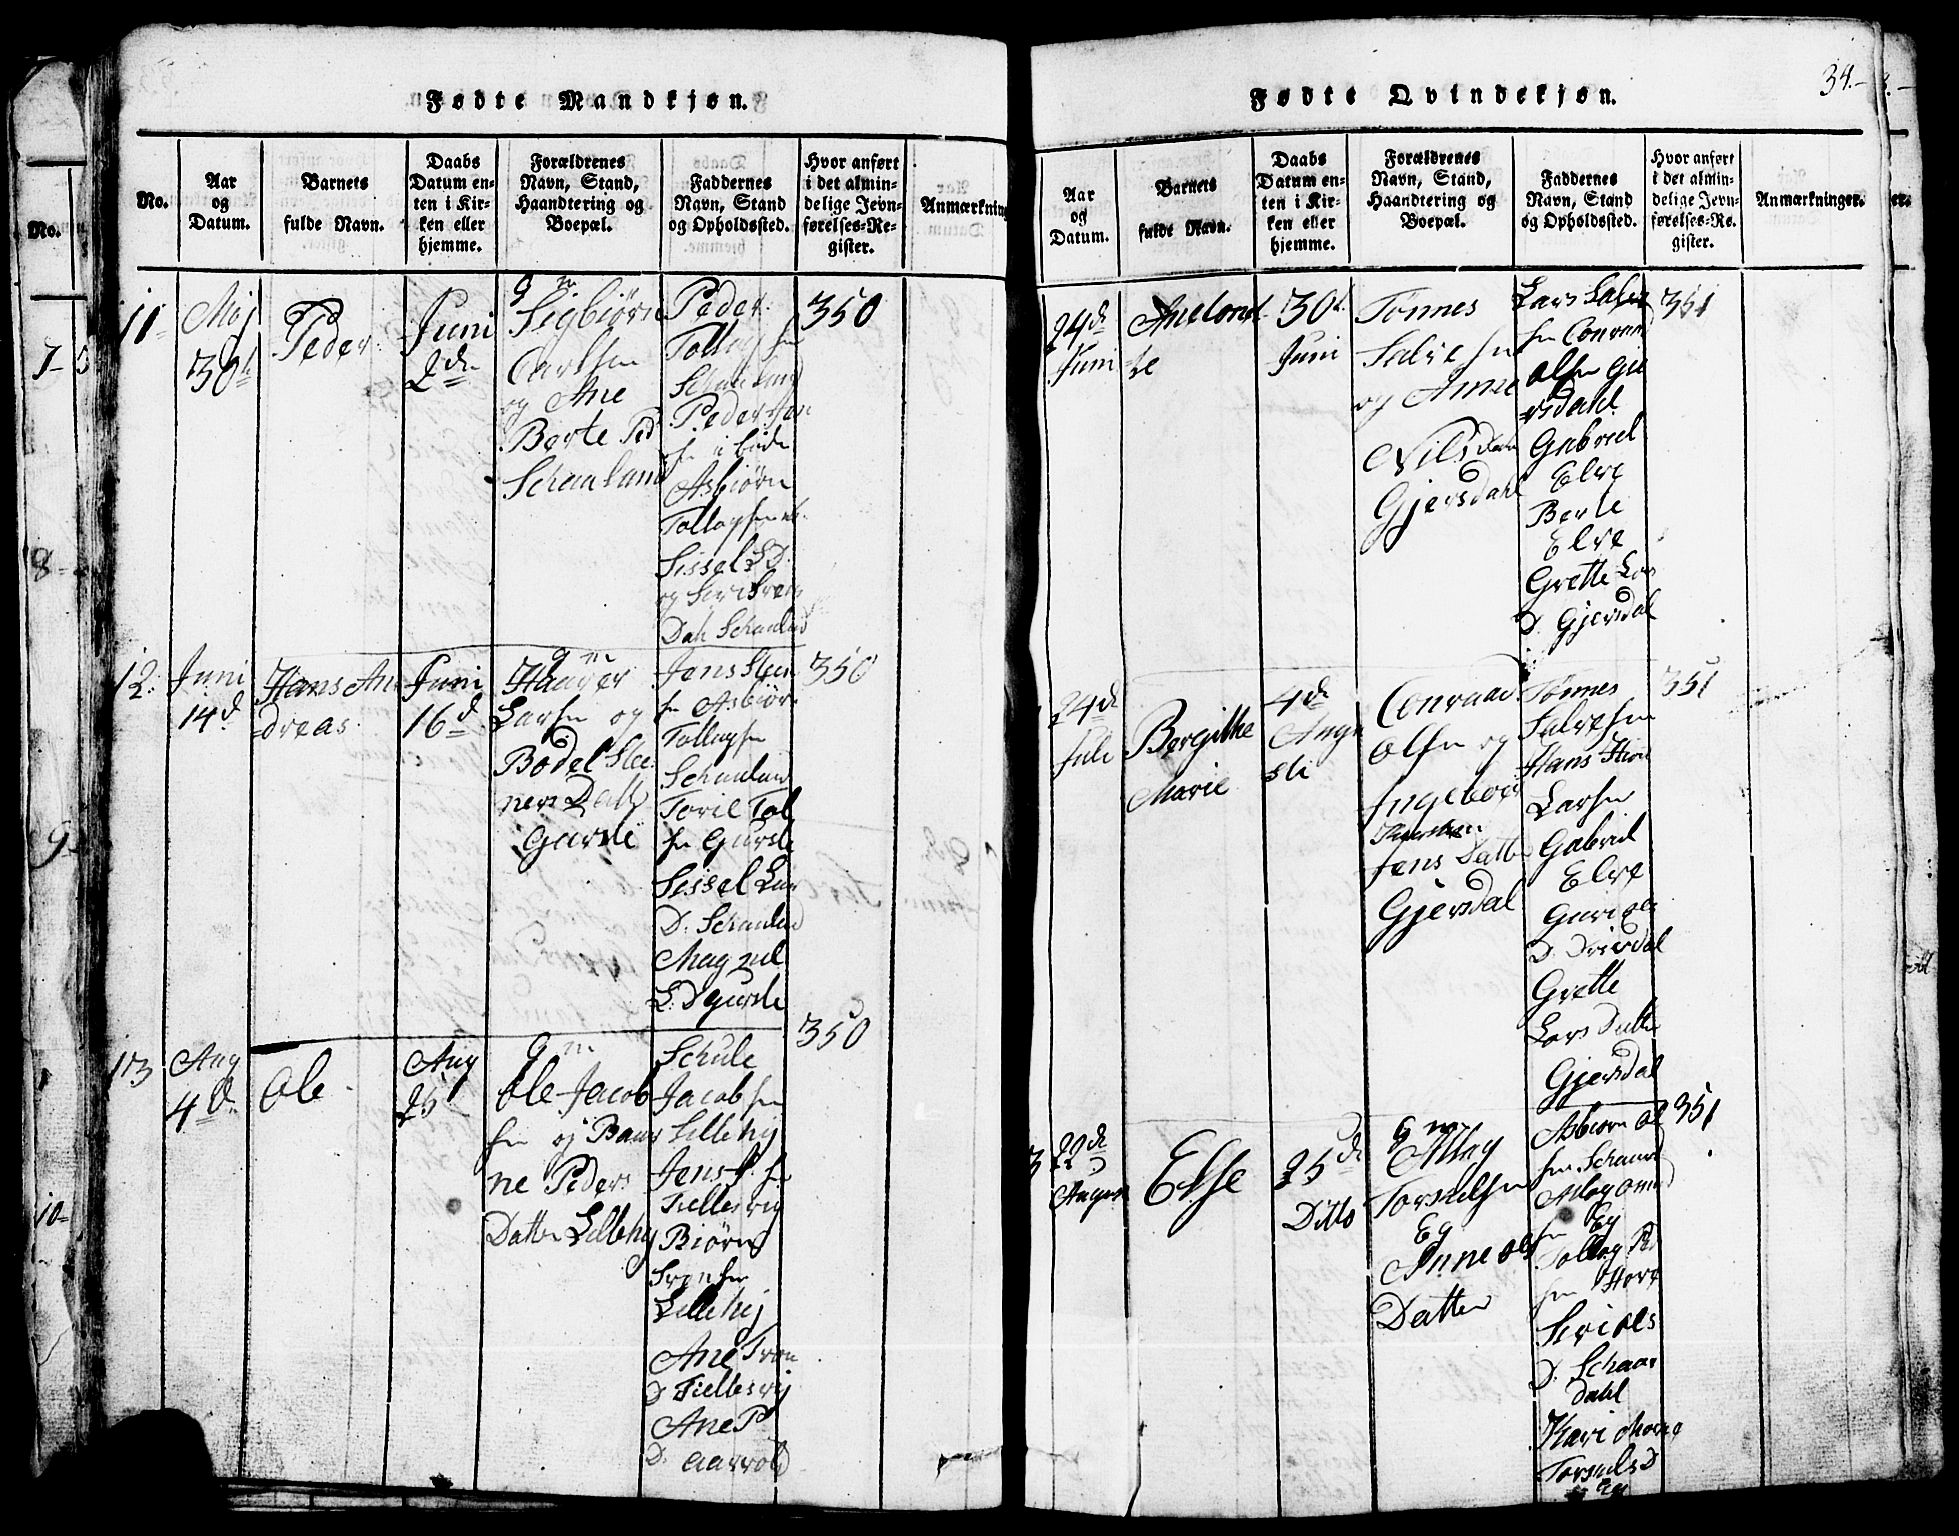 34.
Fødte Mandkjøn.
No.
Aar
og
Datum.
Barnets
fulde Navn.
Daabs
Datum en-
ten i Kir-
ken eller
hjemme.
Forældrenes
Navn, Stand,
Haandtering og
Boepæl.
Faddernes
Navn, Stand
og Opholdssted.
Hvor anført
i det almin-
delige Jevn-
førelses-Re-
gister.
Anmærkning
11
Maj
30t
Peder
Juni
2de
g m
Sigbiørn
Carlsen
og Ane
Berte Ped
Schauland
Peder
Tollagsen
Schauland
Peder
Asbiørn
Tollagsen
Sissel L D.
og Siri
Dat Schauland
350
12.
Juni
14d
Hans An
dreas
Juni
16d
g m
Haaver
Larsen og
Bodel Stee
ners Datt
Gursle
Jens Steen
sen Asbiørn
Tollagsen
Schauland
Toril Tol
sen Gursle
Sissel Lar
D. Schauland
Magnil
L. D Gursle
350
13
Aug
4d
Ole
Aug
25
g m
Ole Jacob
sen og
ne Peders
Datter Lillehej
Schule
Jacobsen
Lillehej
Jens P. sen
Fiellesvig
Biørn
Svensen
Lillehej
Ane Tron
D. Fiellesvig
Ane P
D. Aarrold
350
Fødte Qvindekjøn.
Aar
og
Datum.
Barnets
fulde Navn.
Daabs
Datum en-
ten i Kir-
ken eller
hjemme.
Forældrenes
Navn, Stand,
Haandtering og
Boepæl.
Faddernes
Navn, Stand
og Opholdssted.
Hvor anført
i det almin-
delige Jevn-
førelses-Re-
gister.
Anmærkninger.
24de
Juni
30t
Juni
Tønnes
Salvesen
og Anne
Nilsdatter
Gjersdahl
Lars Salve
sen Conraad
Olsen Gie
rsdahl
Gabriel
Elve
Berte
Elve
Grette Lars
D. Gjersdal
351
24de
Juli
Bergithe
Marie
4de
Augu
sti
Conraad
Olsen og
Ingebor
Jens Datter
Gjersdal
Tønnes
Salvesen
Hans
Larsen
Gabriel
Elve
Guri Ols
D. Drivdal
Grette
Lars Datter
Gjersdal
351
3
22de
August
Else
25de
Ditto
g m
Atlag
Torkielsen
Eg
Anne Ols
Datter
Asbiørn Ol
sen Schaar
Atlag Omund
sen Eg
Tollag Ped
sen Hove
Siri Ols
D. Schaar
dahl
Kari
Torkiels D
Eg
351
7
8
9
10